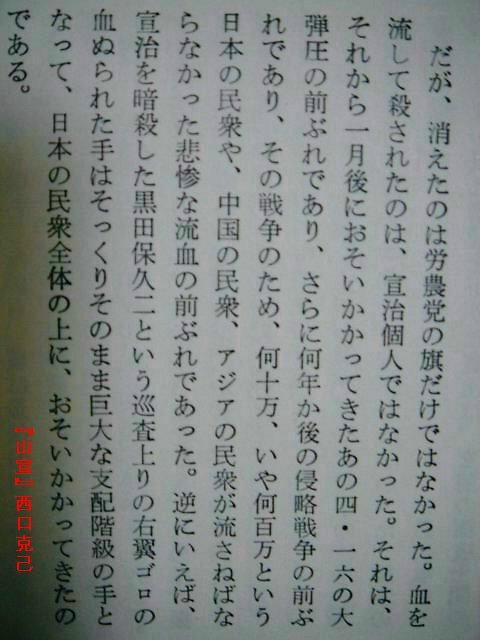 だが、消えたのは労農党の旗だけではなかった。血を
流して殺されたのは、宣治個人ではなかった。それは、
それから一月後におそいかかってきたあの四・一六の大
弾圧の前ぶれであり、さらに何年か後の侵略戦争の前ぶ
れであり、その戦争のため、何十万、いや何百万という
日本の民衆や、中国の民衆、アジアの民衆が流さねばな
らなかった悲惨な流血の前ぶれであった。逆にいえば、
宣治を暗殺した黒田保久二という巡査上りの右翼ゴロの
血ぬられた手はそっくりそのまま巨大な支配階級の手と
なって、日本の民衆全体の上に、おそいかかってきたの
である。
『山宣』西口克己